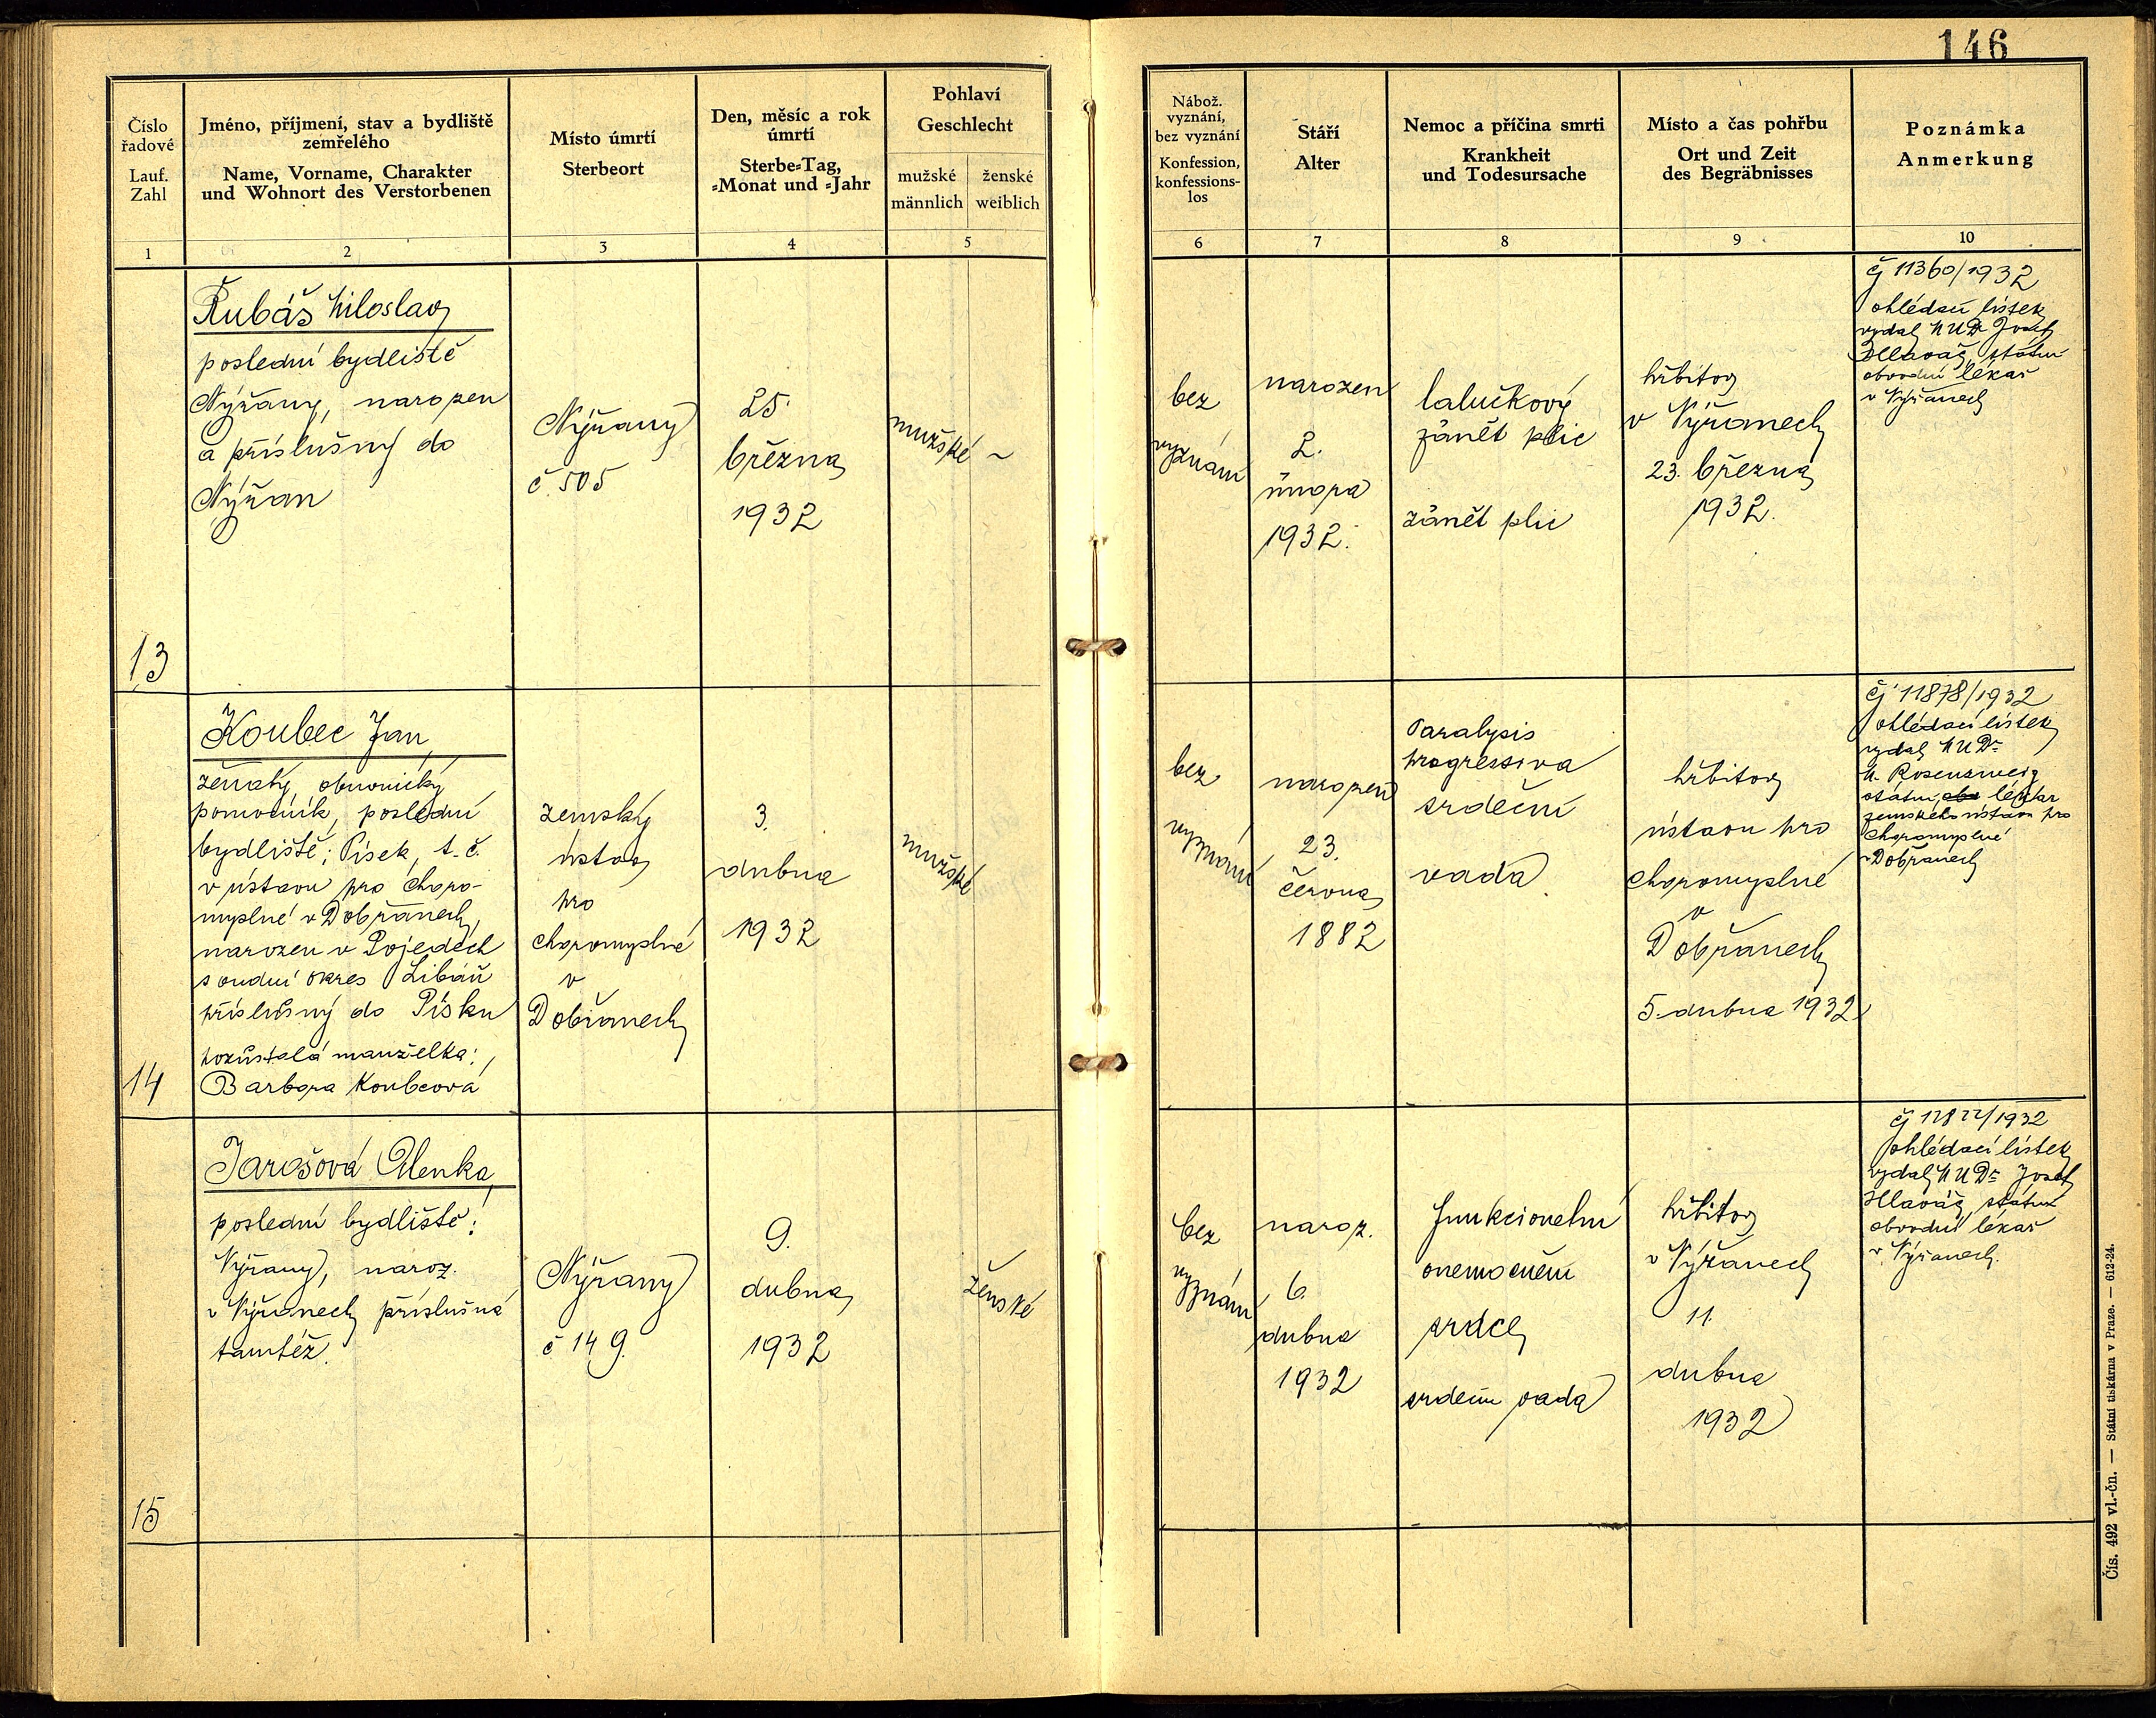 146
Číslo
řadové
Lauf.
Zahl
Jméno, příjmení, stav a bydliště
zemřelého
Name, Vorname, Charakter
und Wohnort des Verstorbenen
Místo úmrtí
Sterbeort
Den, měsíc a rok
úmrtí
Sterbe=Tag,
=Monat und =Jahr
Pohlaví
Geschlecht
mužské
männlich
ženské
weiblich
Nábož.
vyznání,
bez vyznání
Konfession,
konfessions-
los
Stáří
Alter
Nemoc a příčina smrti
Krankheit
und Todesursache
Místo a čas pohřbu
Ort und Zeit
des Begräbnisses
Poznámka
Anmerkung
1
2
3
4
5
6
7
8
9
10
13
Rubáš Miloslav
poslední bydliště
Nýřany, narozen
a příslušný do
Nýřan
Nýřany
č. 505
25.
března
1932
mužské
~
bez
vyznání
narozen
2.
února
1932.
lalůčkový
zánět plic
zánět plic
hřbitov
v Nýřanech
23. března
1932.
čj 11360/1932
ohledací lístek
vydal MUDr Josef
Hlaváč, státní
obvodní lékař
v Nýřanech
14
Koubec Jan,
ženatý, obuvnický
pomocník, poslední
bydliště: Písek, t. č.
v ústavu pro choro-
myslné v Dobřanech,
narozen v Psjedech
soudní okres Libáň
příslušný do Písku
pozůstalá manželka:
Barbora Koubcová
zemský
ústav
pro
choromyslné
v
Dobřanech
3.
dubna
1932
mužské
bez
vyznání
narozen
23.
června
1882
Paralysis
progressiva
srdeční
vada
hřbitov
ústavu pro
choromyslné
v
Dobřanech
5. dubna 1932
čj 11878/1932
ohledací lístek
vydal MUDr
M. Rosenzweig
státní lékař
zemského ústavu pro
choromyslné
v Dobřanech
15
Jarošová Alenka,
poslední bydliště:
Nýřany, naroz.
v Nýřanech příslušná
tamtéž.
Nýřany
č 149.
9.
dubna
1932
ženské
bez
vyznání
naroz.
6.
dubna
1932
funkcionelní
onemocnění
srdce
srdeční vada
hřbitov
v Nýřanech
11.
dubna
1932
čj /1932
ohledací lístek
vydal MUDr Josef
Hlaváč, státní
obvodní lékař
v Nýřanech.
Čís. 492 vl.-čn. — Státní tiskárna v Praze. — 612-24.